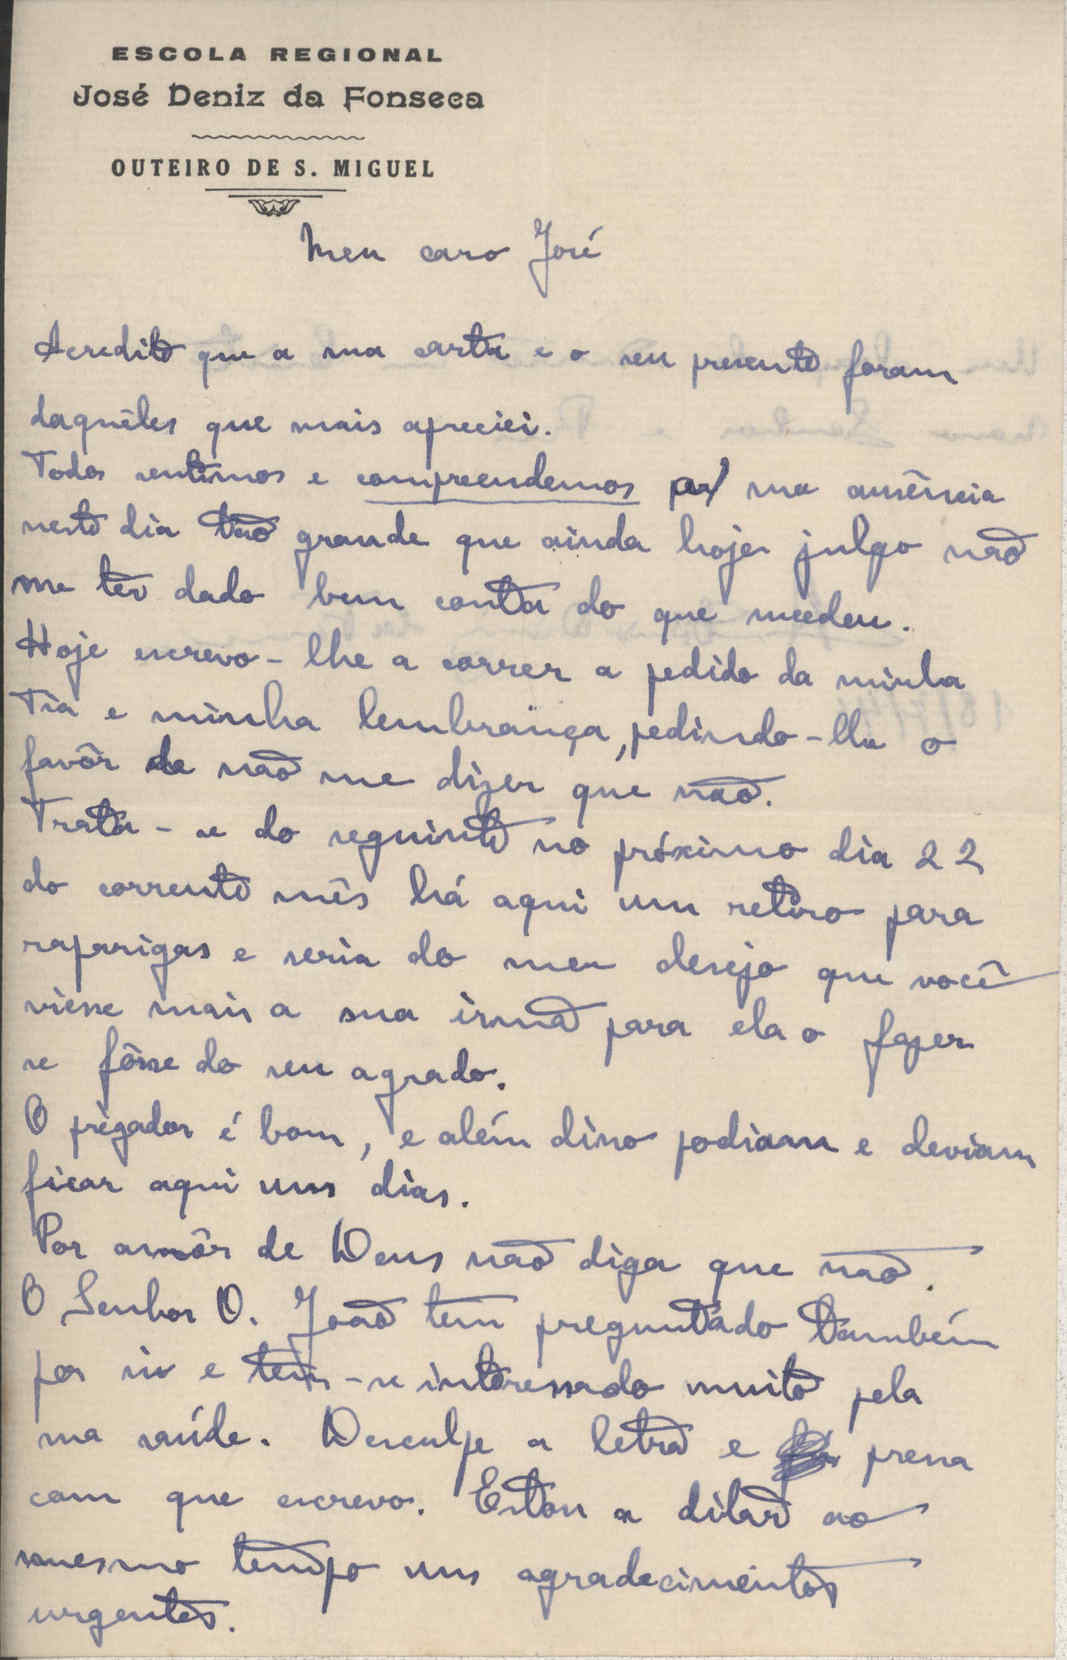 ESCOLA REGIONAL
José Deniz da Fonseca
OUTEIRO DE S. MIGUEL
Meu caro José
Acredito que a sua carta e o seu presente foram
daquêles que mais apreciei.
Todos sentimos e compreendemos a sua ausência
neste dia tão grande que ainda hoje julgo não
me ter dado bem conta do que sucedeu.
Hoje escrevo-lhe a correr a pedido da minha
Tia e minha lembrança, pedindo-lhe o
favôr de não me dizer que não.
Trata-se do seguinte no próximo dia 22
do corrente mês há aqui um retiro para
raparigas e seria do meu desejo que você
viesse mais a sua irmã para ela o fazer
se fôsse do seu agrado.
O prègador é bom, e além disso podiam e deviam
ficar aqui uns dias.
Por amôr de Deus não diga que não.
O Senhor D. João tem preguntado também
por si e tem-se interessado muito pela
sua saúde. Desculpe a letra e pressa
com que escrevo. Estou a ditar ao
mesmo tempo uns agradecimentos
urgentes.